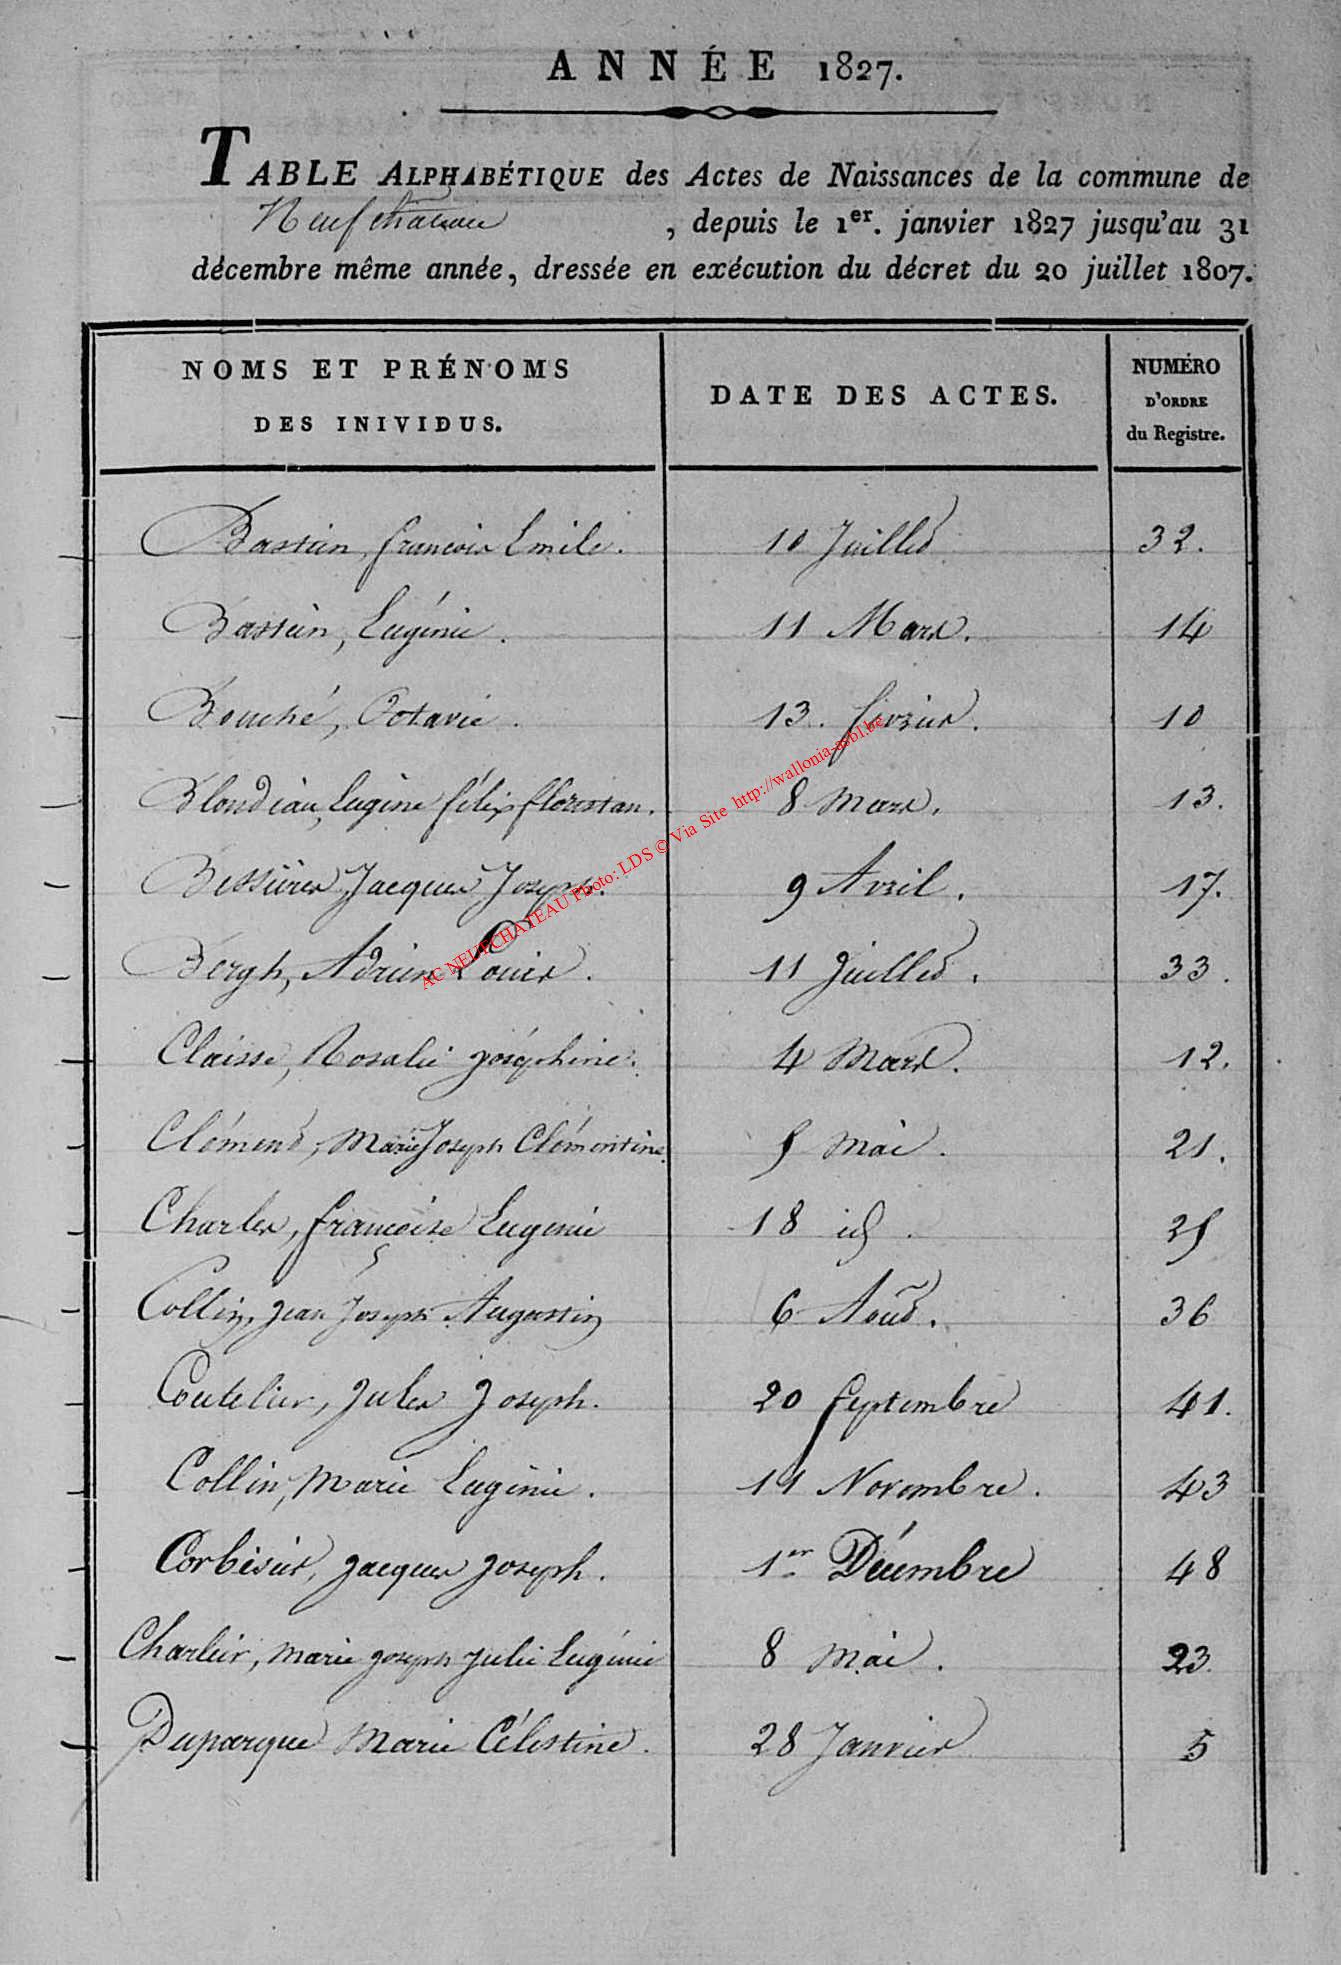 ANNÉE 1827.
TABLE ALPHABÉTIQUE des Actes de Naissances de la commune de
Neufchateau, depuis le 1er. janvier 1827 jusqu'au 31
décembre même année, dressée en exécution du décret du 20 juillet 1807.
NOMS ET PRÉNOMS
DES INIVIDUS.
DATE DES ACTES.
NUMÉRO
D'ORDRE
du Registre.
Bastin, françois Emile. 10 Juillet 32.
Bastin, Eugénie. 11 Mars. 14
Bouché, Octavie. 13. février. 10
Blondiau, Eugène félix florestan. 8 Mars. 13.
Bessières Jacques Joseph. 9 Avril. 17.
Bergh, Adrien Louis. 11 Juillet. 33.
Claisse, Rosalie joséphine. 4 Mars. 12.
Clément, Marie Joseph Clémentine. 5 Mai. 21.
Charles, françoise Eugenie 18 id. 25
Collin, jean Joseph Augustin 6 Août. 36
Coutelier, Jules Joseph. 20 Septembre 41.
Collin, Marie Eugénie. 11 Novembre. 43
Corbisier, jacques joseph. 1er Décembre 48
Charlier, marie joseph julie Eugénie 8 Mai. 23.
Duparque Marie Célestine. 28 Janvier 5
AC NEUFCHATEAU Photo: LDS © Via Site http://wallonia-asbl.be